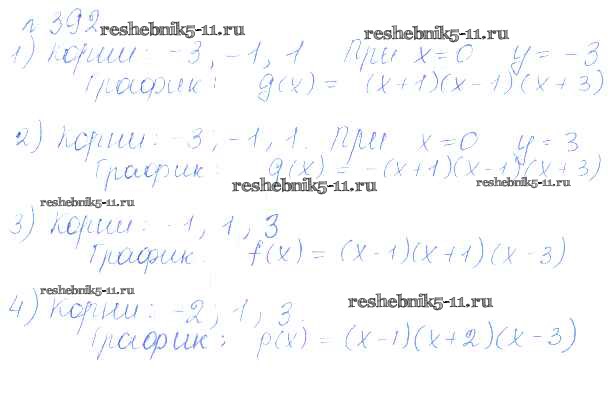 № 392 reshebnik5-11.ru reshebnik5-11.ru
1) Корни: -3, -1, 1 При x=0 y = -3
График: g(x) = (x+1)(x-1)(x+3)
2) Корни: -3, -1, 1. При x=0 y = 3
График: g(x) = -(x+1)(x-1)(x+3)
reshebnik5-11.ru reshebnik5-11.ru
reshebnik5-11.ru
3) Корни: -1, 1, 3
График: f(x) = (x-1)(x+1)(x-3)
reshebnik5-11.ru reshebnik5-11.ru
4) Корни: -2, 1, 3
График: p(x) = (x-1)(x+2)(x-3)